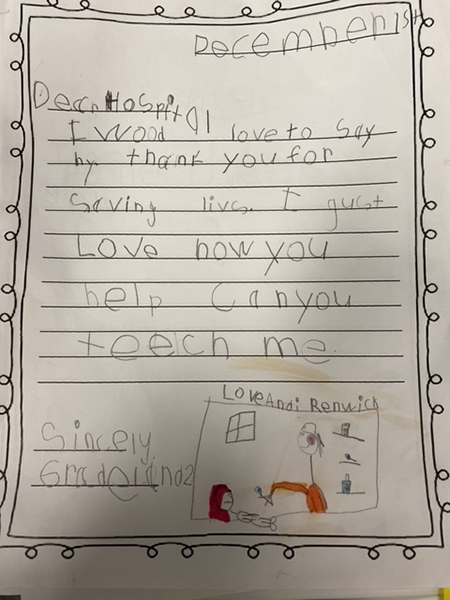 December 1st
Dear Hospital
I wood love to say
hy thank you for
saving livs. I gust
Love how you
help Can you
teech me
Love Andi Renwick
Sincely
Grade 1 and 2